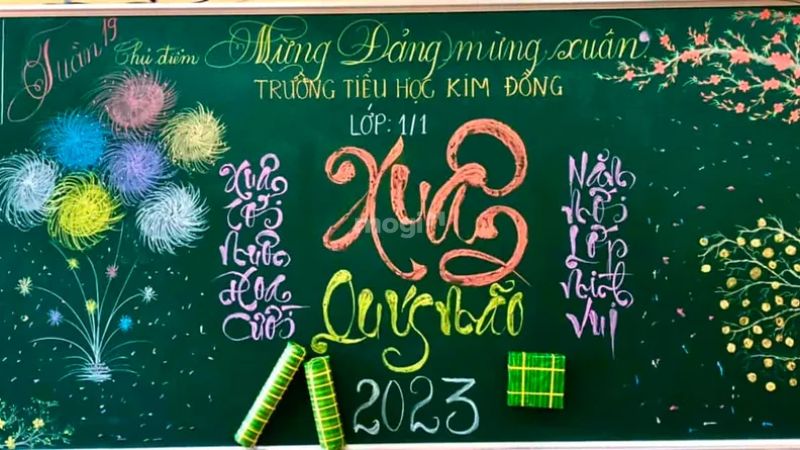 Tuần 19
Chủ điểm Mừng Đảng mừng xuân
TRƯỜNG TIỂU HỌC KIM ĐỒNG
LỚP: 1/1
Xuân
tới
muôn
Hoa
Cười
Xuân
Quý Mão
2023
Năm
mới
Lớp
mình
vui
mogi